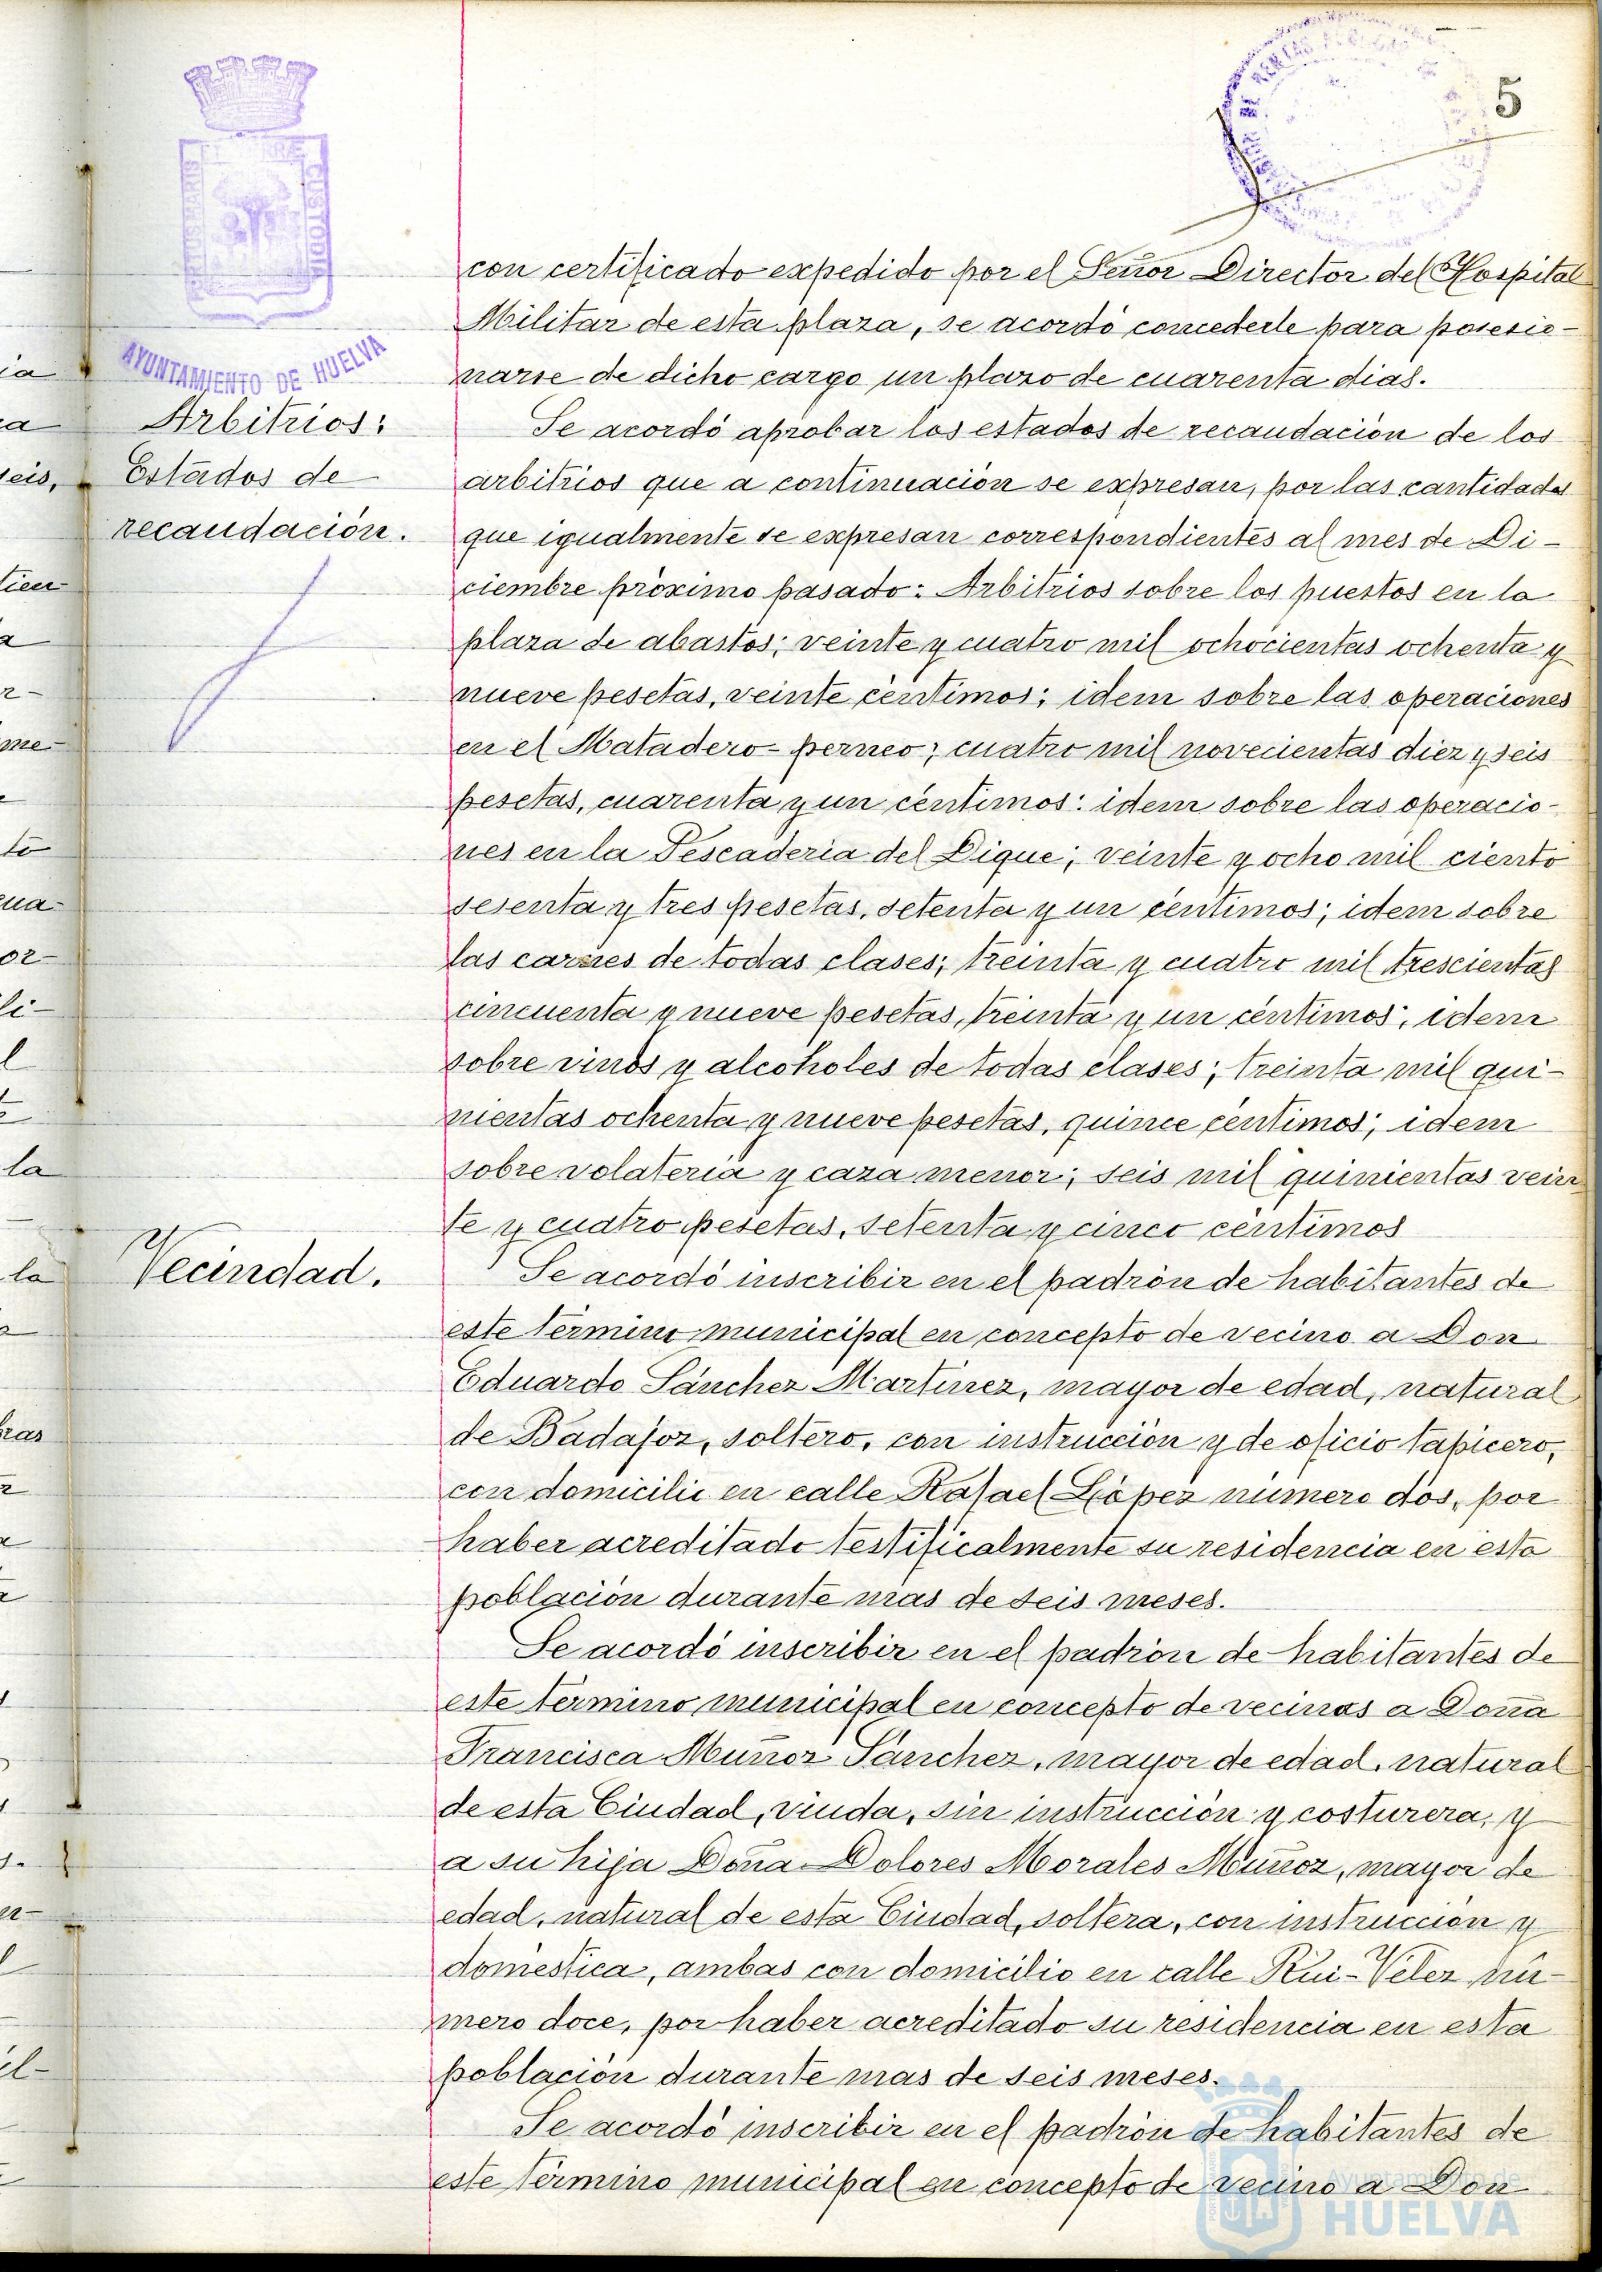 5
PORTUS MARIS ET TERRÆ CUSTODIA
AYUNTAMIENTO DE HUELVA
con certificado expedido por el Señor Director del Hospital
Militar de esta plaza, se acordó concederle para posesio-
narse de dicho cargo un plazo de cuarenta dias.
Arbitrios:
Estados de
recaudación.
Se acordó aprobar los estados de recaudación de los
arbitrios que a continuación se expresan, por las cantidades
que igualmente se expresan correspondientes al mes de Di-
ciembre próximo pasado: Arbitrios sobre los puestos en la
plaza de abastos; veinte y cuatro mil ochocientas ochenta y
nueve pesetas, veinte céntimos; idem sobre las operaciones
en el Matadero-perneo; cuatro mil novecientas diez y seis
pesetas, cuarenta y un céntimos: idem sobre las operacio-
nes en la Pescaderia del Dique; veinte y ocho mil ciento
sesenta y tres pesetas, setenta y un céntimos; idem sobre
las carnes de todas clases; treinta y cuatro mil trescientas
cincuenta y nueve pesetas, treinta y un céntimos; idem
sobre vinos y alcoholes de todas clases; treinta mil qui-
nientas ochenta y nueve pesetas, quince céntimos; idem
sobre volateria y caza menor; seis mil quinientas vein
te y cuatro pesetas, setenta y cinco céntimos
Vecindad.
Se acordó inscribir en el padrón de habitantes de
este término municipal en concepto de vecino a Don
Eduardo Sánchez Martinez, mayor de edad, natural
de Badajoz, soltero, con instrucción y de oficio tapicero,
con domicilio en calle Rafael López número dos, por
haber acreditado testificalmente su residencia en esta
población durante mas de seis meses.
Se acordó inscribir en el padrón de habitantes de
este término municipal en concepto de vecinas a Doña
Francisca Muñoz Sánchez, mayor de edad, natural
de esta Ciudad, viuda, sin instrucción y costurera, y
a su hija Doña Dolores Morales Muñoz, mayor de
edad, natural de esta Ciudad, soltera, con instrucción y
doméstica, ambas con domicilio en calle Rui-Velez nú-
mero doce, por haber acreditado su residencia en esta
población durante mas de seis meses.
Se acordó inscribir en el padrón de habitantes de
este término municipal en concepto de vecino a Don
Ayuntamiento de
HUELVA